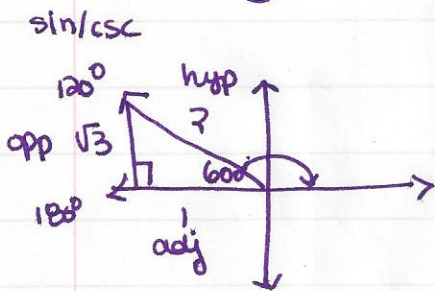 sin/csc
120°
hyp
opp √3
2
60°
180°
1
adj